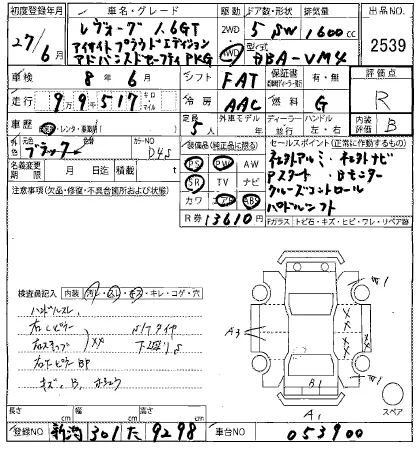 初度登録年月
27/6月
車名・グレード
レヴォーグ 1.6GT
アイサイトプラウドエディション
アドバンスドセーフティPKG
駆動 ドア数・形状 排気量
2WD 5 SW 1600cc
4WD 型式 DBA-VM4
出品NO.
2539
車検 8年6月
シフト FAT
保証書 有・無
評価点
R
走行 99517 キロ マイル
冷房 AAC
燃料 G
車歴 自家用・レンタ・事業用( )
定員 5人
外車モデル
ディーラー 並行
ハンドル 左・右
内装 B
元色 色替
ブラック
カラーNO
D4S
装備品(純正品に限る)
PS PW AW
SR TV ナビ
カワ エアB ABS
セールスポイント(正常に作動するもの)
社外アルミ・社外ナビ
Pスタート Bモニター
クルーズコントロール
パドルシフト
名義変更期限 月 日迄
積載 t
R券 13610円
Fガラス:トビ石・キズ・ヒビ・ワレ・リペア跡
注意事項(欠品・修復・不具合箇所および状態)
検査員記入 内装 汚レ・スレ・キズ・キレ・コゲ・穴
ハンドルスレ
右Cピラー
右ステップ XX
S/Tタイヤ
下廻りS
キズ、B、
A3
B1
A1
スペア
長さ cm 幅 cm 高さ cm
登録NO 新潟 301 た 9298
車台NO 053900